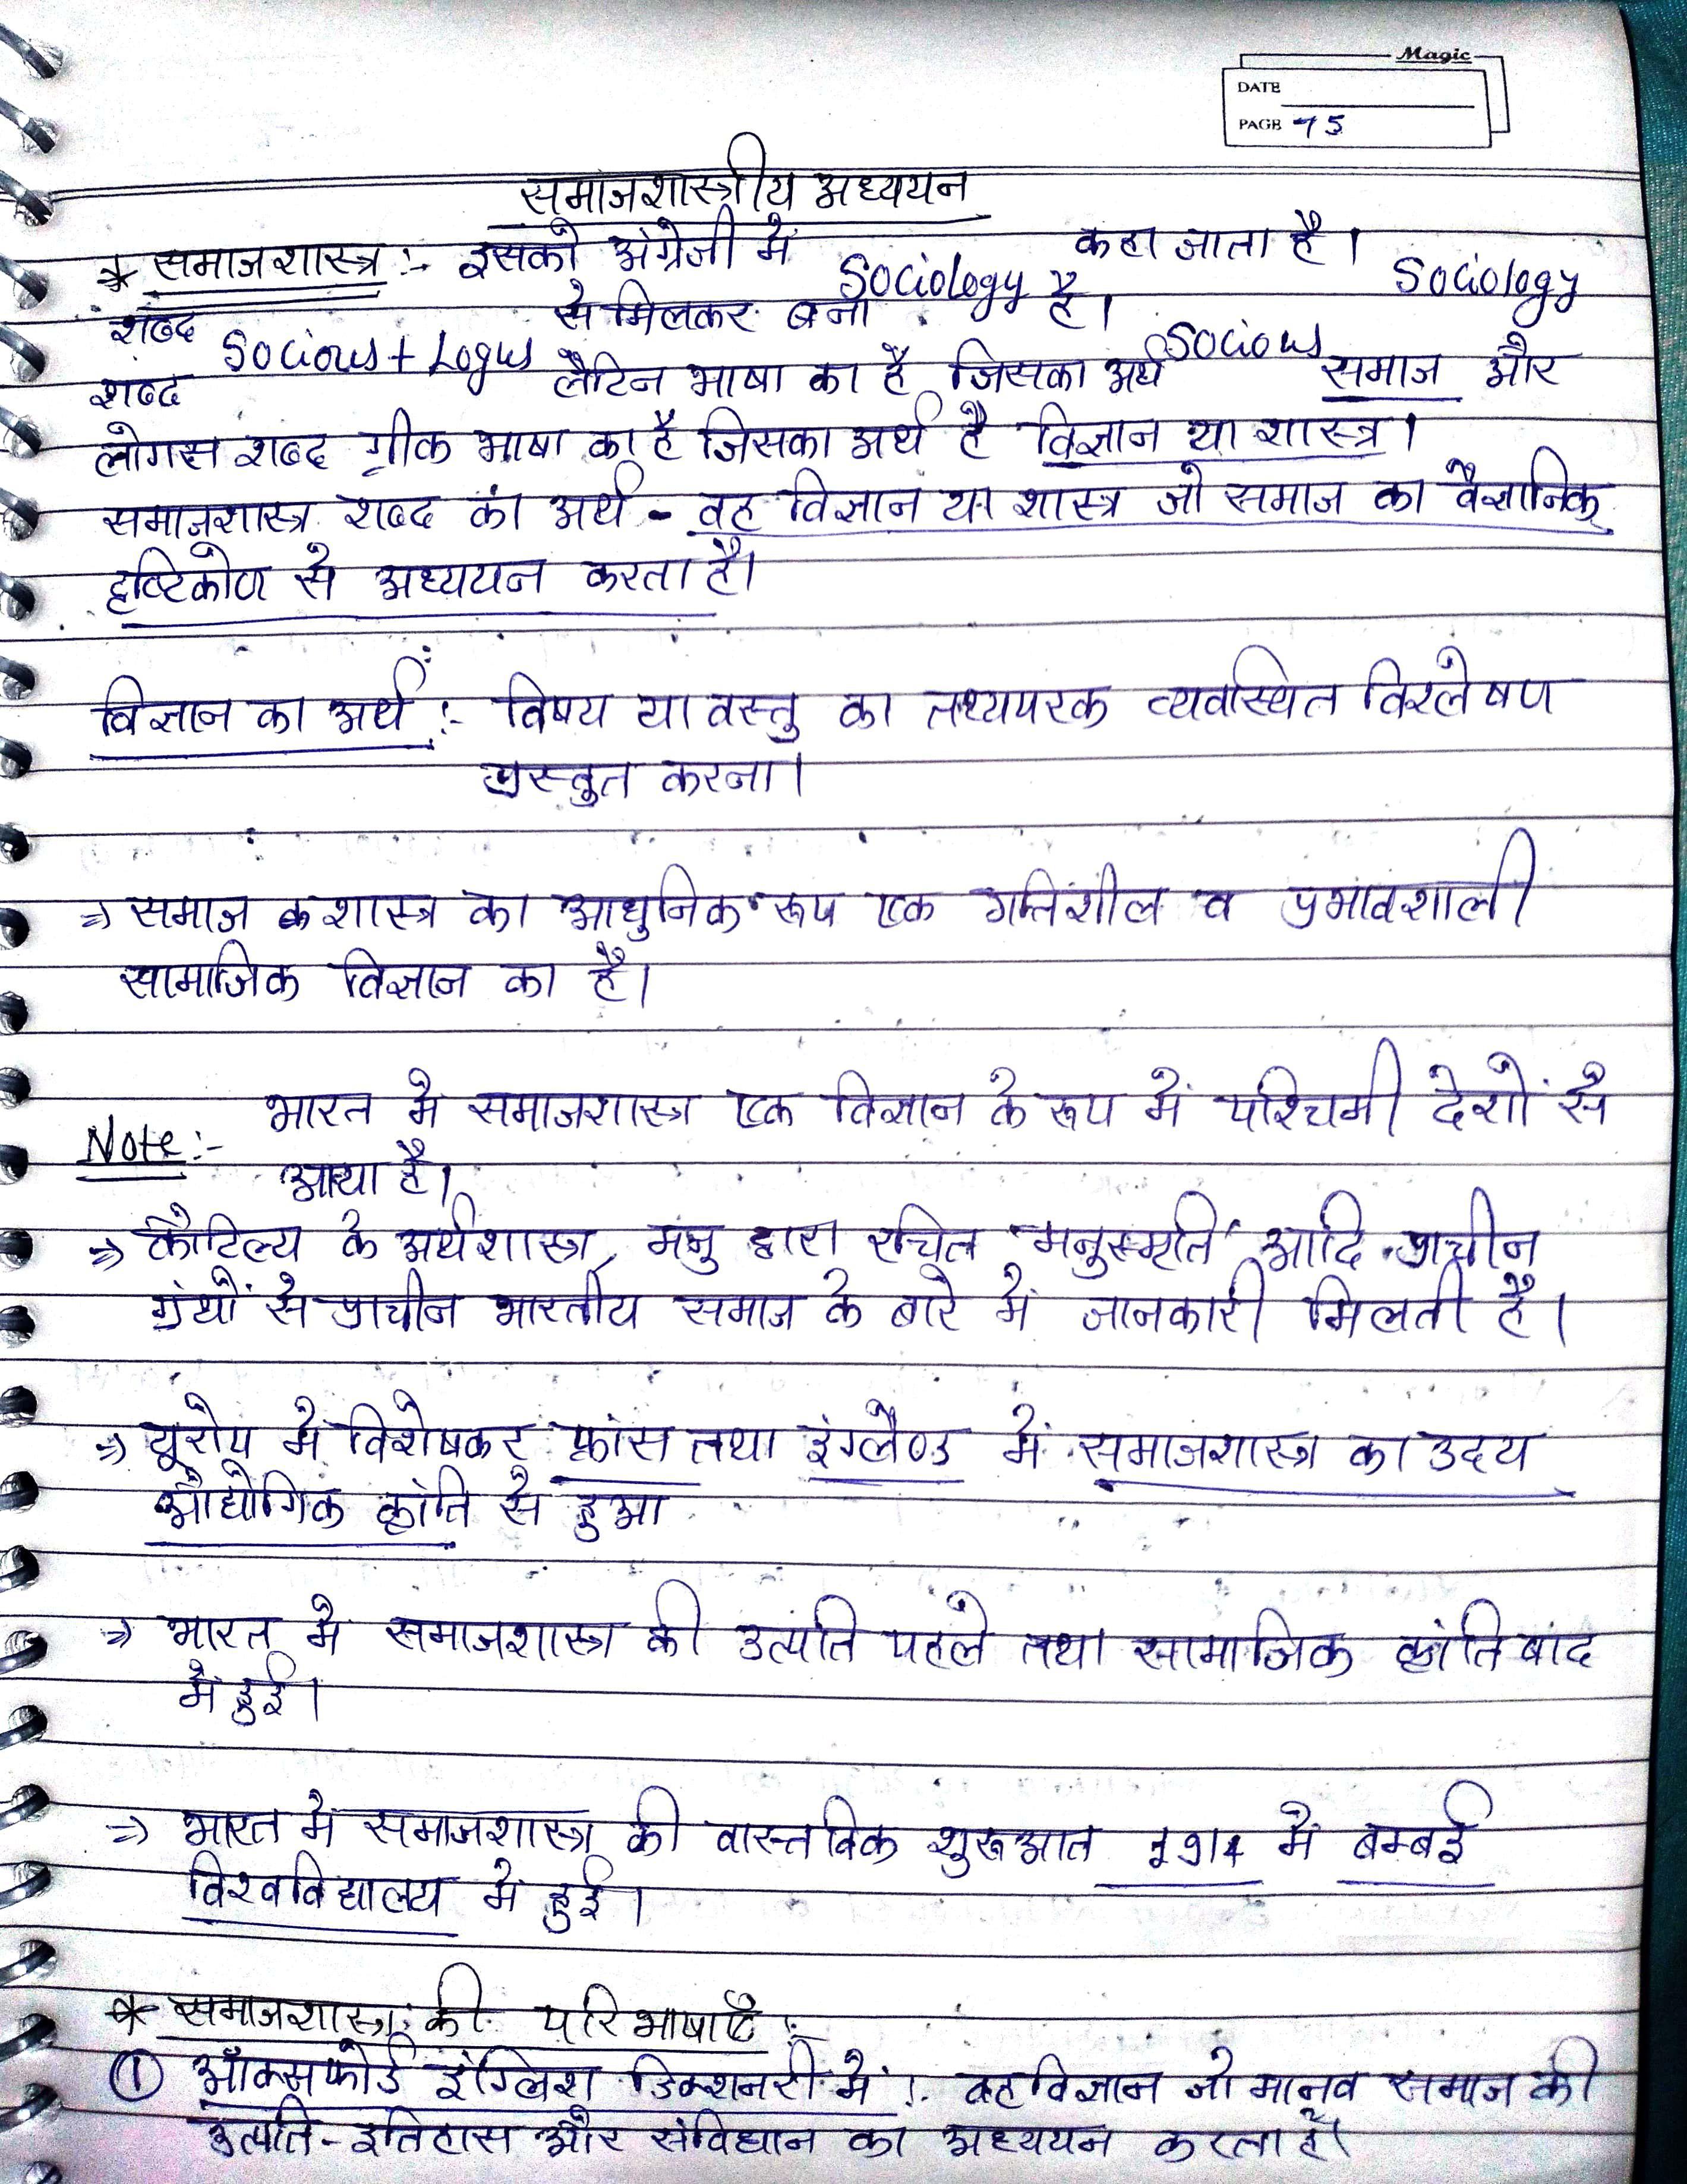 Magic
DATE
PAGE 75
समाजशास्त्रीय अध्ययन
* समाजशास्त्र :- इसको अंग्रेजी में Sociology कहा जाता है। Sociology
शब्द Socious + Logus से मिलकर बना है। Socious
शब्द लैटिन भाषा का है जिसका अर्थ समाज और
लोगस शब्द ग्रीक भाषा का है जिसका अर्थ है विज्ञान या शास्त्र।
समाजशास्त्र शब्द का अर्थ - वह विज्ञान या शास्त्र जो समाज का वैज्ञानिक
दृष्टिकोण से अध्ययन करता है।
विज्ञान का अर्थ :- विषय या वस्तु का तथ्यपरक व्यवस्थित विश्लेषण
प्रस्तुत करना।
⇒ समाज शास्त्र का आधुनिक रूप एक गतिशील व प्रभावशाली
सामाजिक विज्ञान का है।
Note :- भारत मे समाजशास्त्र एक विज्ञान के रूप में पश्चिमी देशों से
आया है।
⇒ कौटिल्य के अर्थशास्त्र, मनु द्वारा रचित 'मनुस्मृति' आदि प्राचीन
ग्रंथों से प्राचीन भारतीय समाज के बारे में जानकारी मिलती है।
⇒ यूरोप में विशेषकर फ्रांस तथा इंग्लैण्ड में समाजशास्त्र का उदय
औद्योगिक क्रांति से हुआ
⇒ भारत मे समाजशास्त्र की उत्पति पहले तथा सामाजिक क्रांति बाद
मे हुई।
⇒ भारत मे समाजशास्त्र की वास्तविक शुरूआत 1914 में बम्बई
विश्वविद्यालय मे हुई।
* समाजशास्त्र की परिभाषाएँ :-
① ऑक्सफोर्ड इंग्लिश डिक्शनरी में :- वह विज्ञान जो मानव समाज की
उत्पति - इतिहास और संविधान का अध्ययन करता है।